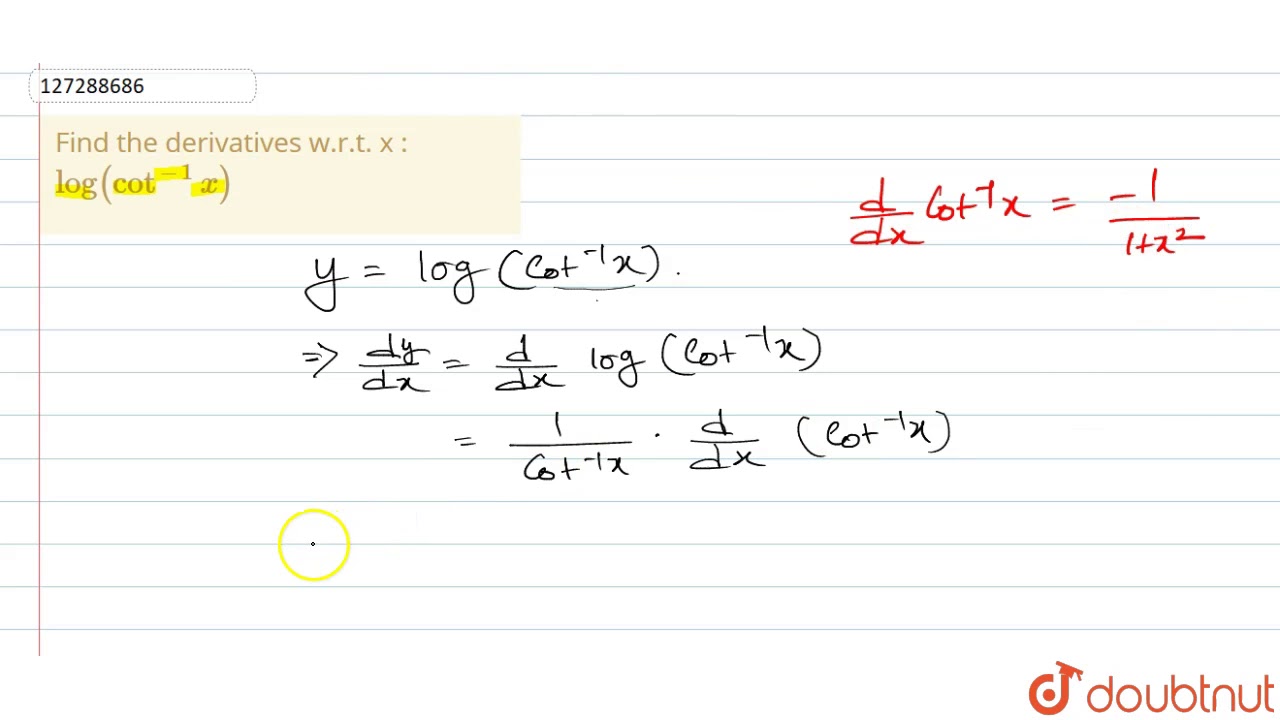 127288686
Find the derivatives w.r.t. x :
log(cot⁻¹ x)
d/dx Cot⁻¹x = -1/1+x²
y = log (Cot⁻¹x).
=> dy/dx = d/dx log (Cot⁻¹x)
= 1/Cot⁻¹x · d/dx (Cot⁻¹x)
doubtnut